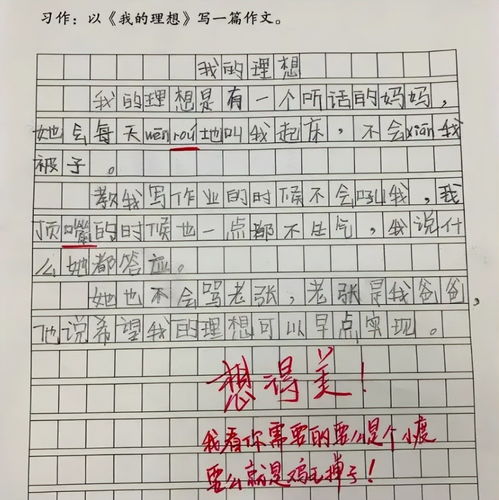 习作：以《我的理想》写一篇作文。
我的理想
我的理想是有一个听话的妈妈，
她会每天wēnróu地叫我起床，不会xiān我
被子。
教我写作业的时候不会吼我，我
顶嘴的时候也一点都不生气，我说什
么她都答应。
她也不会骂老张，老张是我爸爸，
他说希望我的理想可以早点实现。
想得美！
我看你需要的要么是个小
要么就是鸡毛掸子！